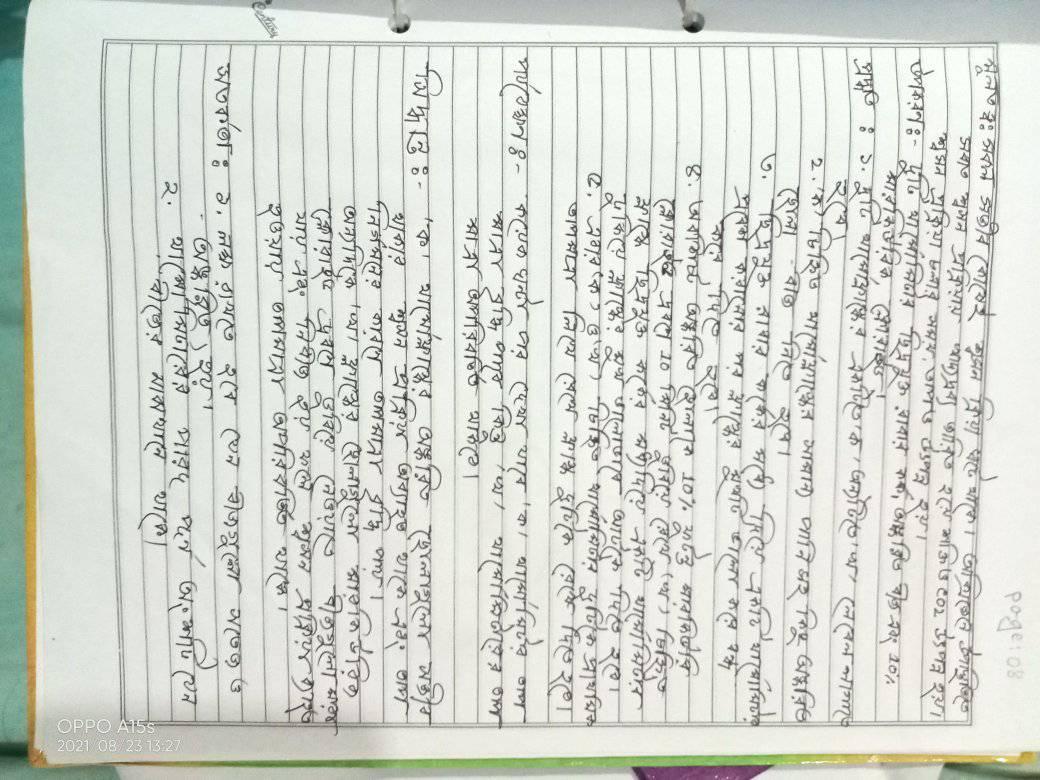 page: 08
মূলতত্ত্ব: সকল সজীব কোষেই শ্বসন ক্রিয়া ঘটে থাকে। অক্সিজেনে উপস্থিতিতে
সবাত শ্বসন প্রক্রিয়ায় খাদ্যদ্রব্য জারিত হয়ে শক্তি ও CO2 উৎপন্ন হয়।
শ্বসন প্রক্রিয়া চলার সময় তাপও উৎপন্ন হয়।
উপকরণ:- দুটি থার্মোমিটার ছিদ্রযুক্ত রাবার কর্ক, অঙ্কুরিত বীজ এবং 10%
মারকিউরিক ক্লোরাইড।
পদ্ধতি : ১. দুটি থার্মোফ্লাস্কের একটিতে 'ক' অন্যটিতে 'খ' লেবেল লাগাতে
হবে।
২. 'ক' চিহ্নিত থার্মোফ্লাস্কের সামান্য পানিসহ কিছু অঙ্কুরিত
ছোলা বীজ নিতে হবে।
৩. ছিদ্রযুক্ত রাবার কর্কের মধ্যে দিয়ে একটি থার্মোমিটার
প্রবেশ করানোর পর ফ্লাস্কের মুখটি ভালো করে বন্ধ
করে দিতে হবে।
৪. অবশিষ্ট অঙ্কুরিত ছোলাকে 10% ফুটন্ত মারকিউরি
ক্লোরাইড দ্রবণে 10 মিনিট ডুবিয়ে রেখে 'খ' চিহ্নিত
ফ্লাস্কে ছিদ্রযুক্ত কর্কের মধ্যদিয়ে একটি থার্মোমিটার
ঢুকিয়ে ফ্লাস্কের মুখ ভালোভাবে আটকে দিতে হবে।
৫. এবার 'ক' ও 'খ' চিহ্নিত থার্মোমিটার দুটিকে প্রাথমিক
তাপমাত্রা লিখে রেখে ফ্লাস্ক দুটিকে রেখে দিতে হবে।
পর্যবেক্ষণ:- কয়েক ঘন্টা পর দেখা যাবে 'ক' থার্মোমিটার তাপ
মাত্রা বৃদ্ধি পাবে কিন্তু 'খ' থার্মোমিটারের তাপ
মাত্রা অপরিবর্তিত থাকবে।
সিদ্ধান্ত:- 'ক' থার্মোফ্লাস্কের অঙ্কুরিত ছোলাগুলো সজীব
থাকার শ্বসন প্রক্রিয়া অব্যাহত থাকে এবং তাপ
নির্গমনের কারণে তাপমাত্রা বৃদ্ধি পায়।
অন্যদিকে 'খ' ফ্লাস্কের ছোলাগুলো মারকিউরিক
ক্লোরাইড দ্রবণে ডুবিয়ে নেওয়াতে বীজগুলো মারা
যায় এবং নির্বীজ হয় ফলে শ্বসন প্রক্রিয়া ব্যাহত
হওয়ায় তাপমাত্রা অপরিবর্তিত থাকে।
সতর্কতা: ১. লক্ষ রাখতে হবে যেন বীজগুলো সতেজ ও
অঙ্কুরিত হয়।
২. থার্মোমিটারের পারদ পূর্ন অংশটি যেন
বীজের মাঝখানে থাকে।
Century
OPPO A15s
2021 08 23 13:27